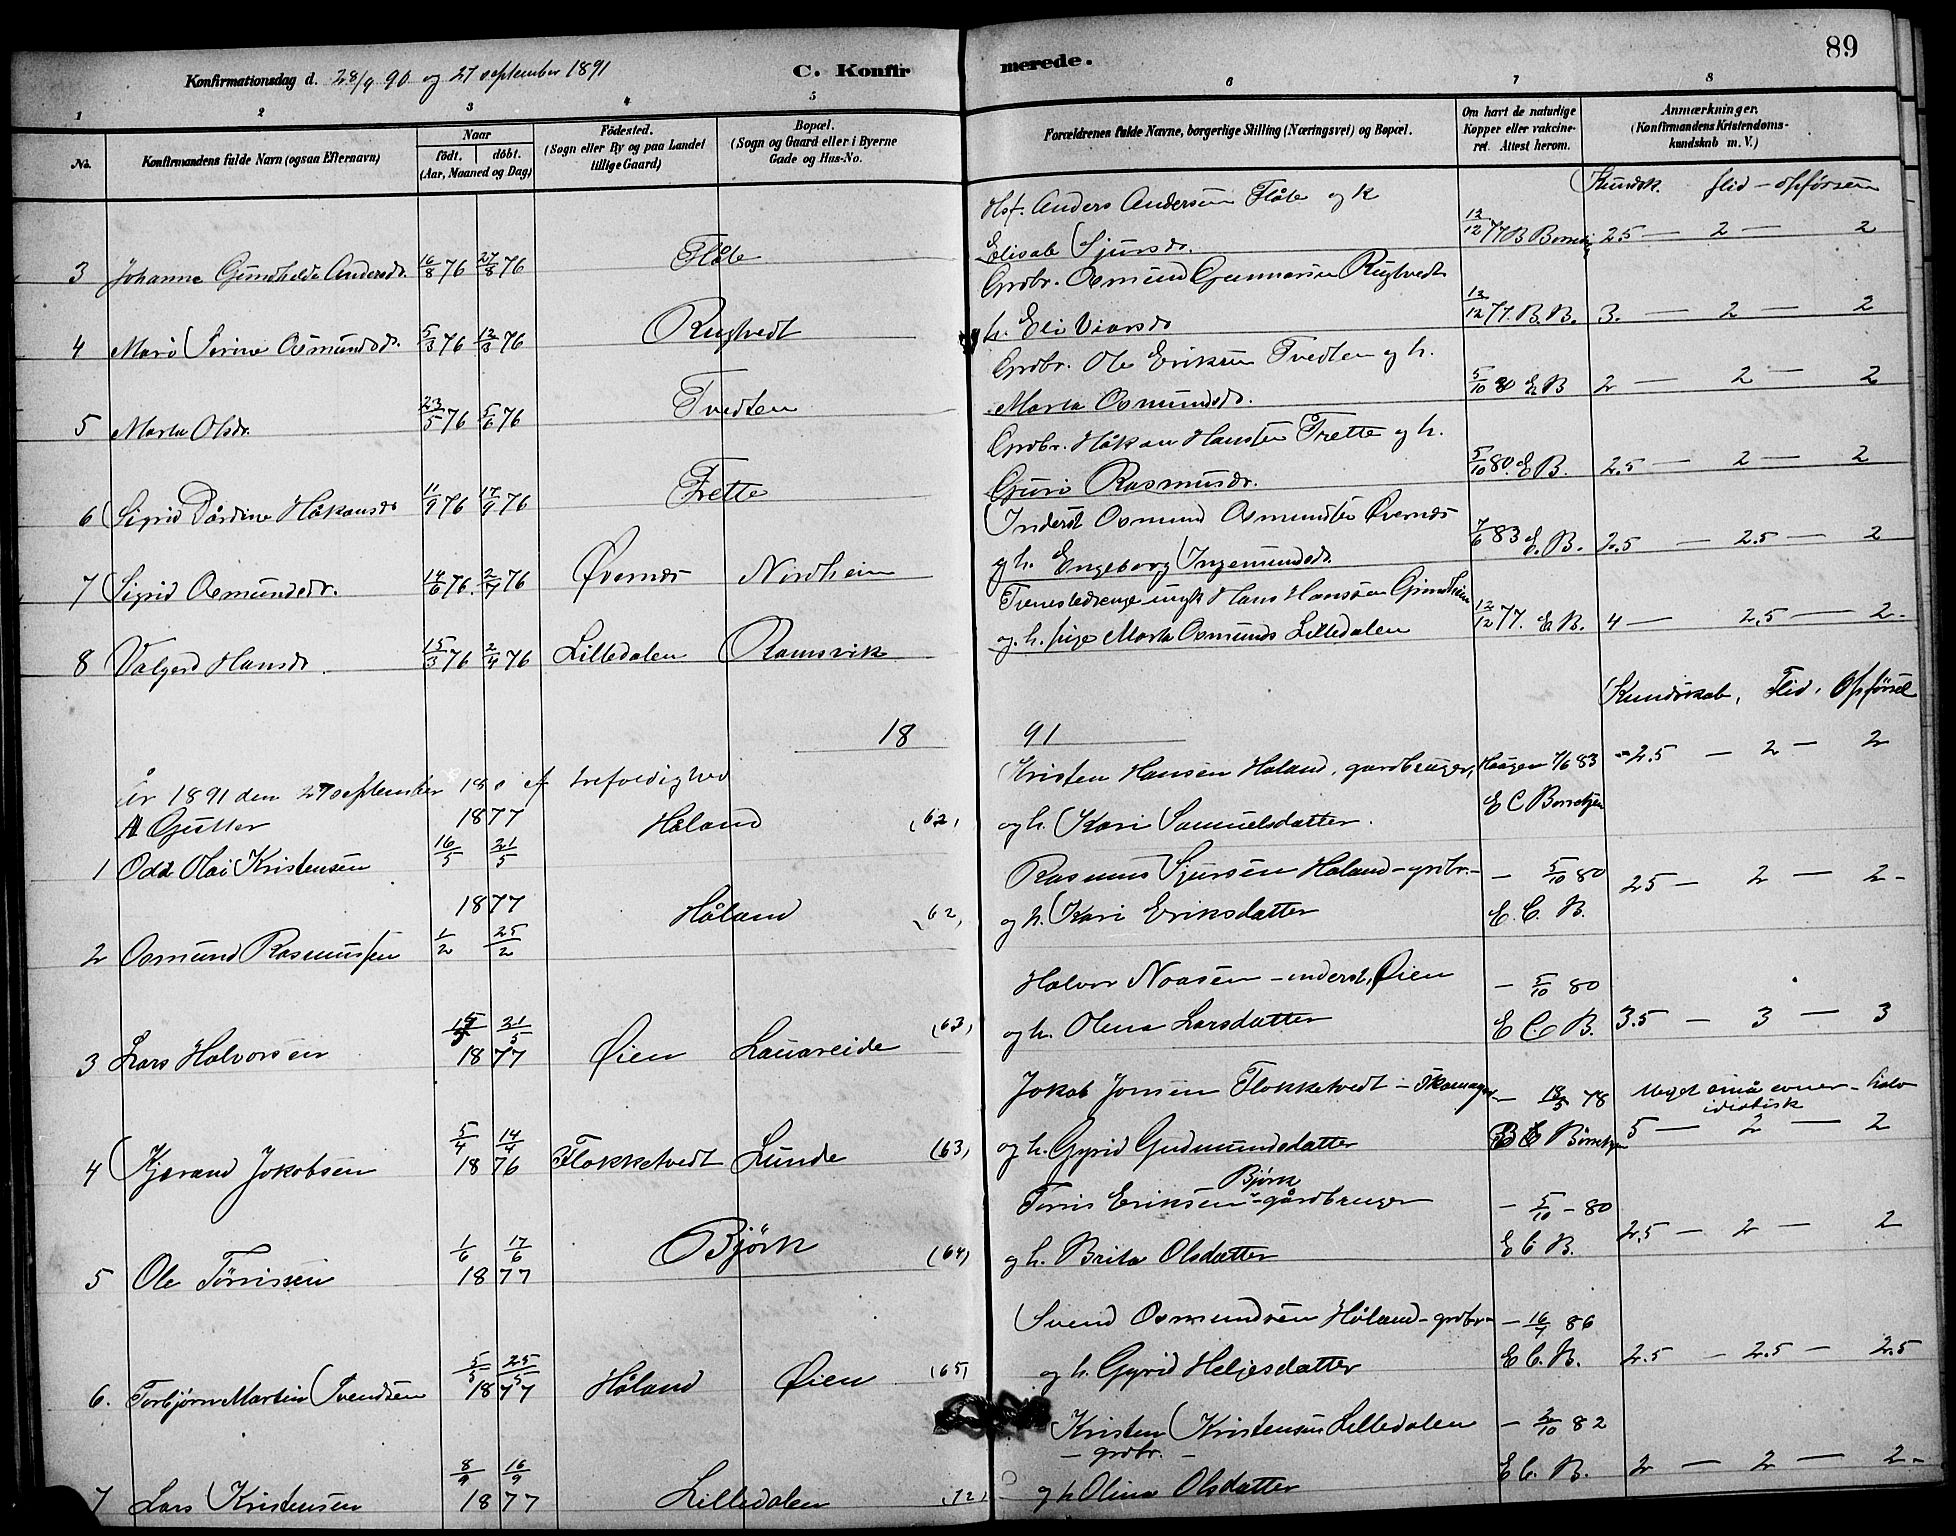 Konfirmationsdag d. 28/9 90 og 27 september 1891
C. Konfirmerede.
89
1 2 3 4 5 6 7 8
No.
Konfirmandens fulde Navn (ogsaa Efternavn)
Naar
födt. döbt.
(Aar, Maaned og Dag)
Födested.
(Sogn eller By og paa Landet
tillige Gaard)
Bopæl.
(Sogn og Gaard eller i Byerne
Gade og Hus-No.
Forældrenes fulde Navne, borgerlige Stilling (Næringsvei) og Bopæl.
Om havt de naturlige
Kopper eller vakcine-
ret. Attest herom.
Anmærkninger.
(Konfirmandens Kristendoms-
kundskab m. V.)
Kundsk. flid - opførsen
Hsf. Anders Andersen Flåte og k
Elisab Sjursdr.
3 Johanne Gunhilda Andersdr. 16/8 76 27/8 76 Flåte 12/12 77 B 2.5 — 2 — 2
Grdbr. Osmund Gunnarsen Rugtvedt
h. Eli Viarsdr
4 Mari Serine Osmundsdr. 5/3 76 12/3 76 Rugtvedt 12/12 77. B. B. 3. — 2 — 2
Grdbr. Ole Eriksen Tvedten og h.
Marta Osmundsdr.
5 Marta Olsdr. 23/5 76 5/6 76 Tvedten 5/10 80 E B 2 — 2 — 2
Grdbr. Håkan Hansen Trette og h.
Guro Rasmusdr.
6 Sigrid Dårdine Håkansdr 11/9 76 17/9 76 Trette 5/10 80. E B. 2.5 — 2 — 2
Inderst Osmund Osmundsen Øvernes
og h. Engeborg Ingemundsdr.
7 Sigrid Osmundsdr. 14/6 76. 2/7 76 Øvernes Nordheim 7/6 83 E. B. 2.5 — 2.5 — 2
Tjenestedrenge ungk Hans Hansen Grindheim
og. h. pige Marta Osmunds Lilledalen
8 Valgerd Hansdr. 15/3 76 2/4 76 Lilledalen Ramsvik 12/12 77. E B. 4 — 2.5 — 2 -
Kundskab, Flid, Opførsel
18 91
År 1891 den 27 september 18 s. ef trefoldighed
A Gutter
1 Odd Olai Kristensen 1877 16/5 21/5 Håland (62)
Kristen Hansen Håland, gardbruger, Haagen 7/6 83 - 2.5 — 2 — 2
og h. Kari Samuelsdatter. E C Børretzen
2 Osmund Rasmussen 1877 1/2 25/2 Håland (62)
Rasmus Sjursen Håland - grdbr. — 5/10 80 2.5 — 2 — 2 -
og h. Kari Eriksdatter E. C. B.
3 Lars Halvorsen 31/5 1877 Øien Lauareide (63)
Halvor Noasen - inderst, Øien — 5/10 80
og h. Olena Larsdatter E C. B. 3.5 — 3 — 3
4 Kjærand Jokobsen 5/4 14/4 1876 Flokketvedt Lunde (63)
Jokob Jonsen Flokketvedt - skomager — 18/5 78 Meget små evner - halv
idiotisk
og h. Gyrid Gudmundsdatter E C Børretzen 5 — 2 — 2
5 Ole Tørrissen 1/6 17/6 1877 Bjørk (64)
Bjørk
Tørris Eriksen - gårdbruger — 5/10 - 80
og h. Brita Olsdatter E C B. 2.5 — 2 — 2
6. Torbjørn Martin Svendsen 5/5 25/5 1877 Håland Øien (65)
Svend Osmundsen Håland - grdbr — 16/7 86
og h. Gyrid Heljesdatter E C. B. 2.5 — 2.5 — 2.5
7 Lars Kristensen 8/9 16/9 1877 Lilledalen (72)
Kristen Kristensen Lilledalen — 2/10 82
— grdbr. —
og h Olina Olsdatter E C. B. 2 — 2 — 2 -